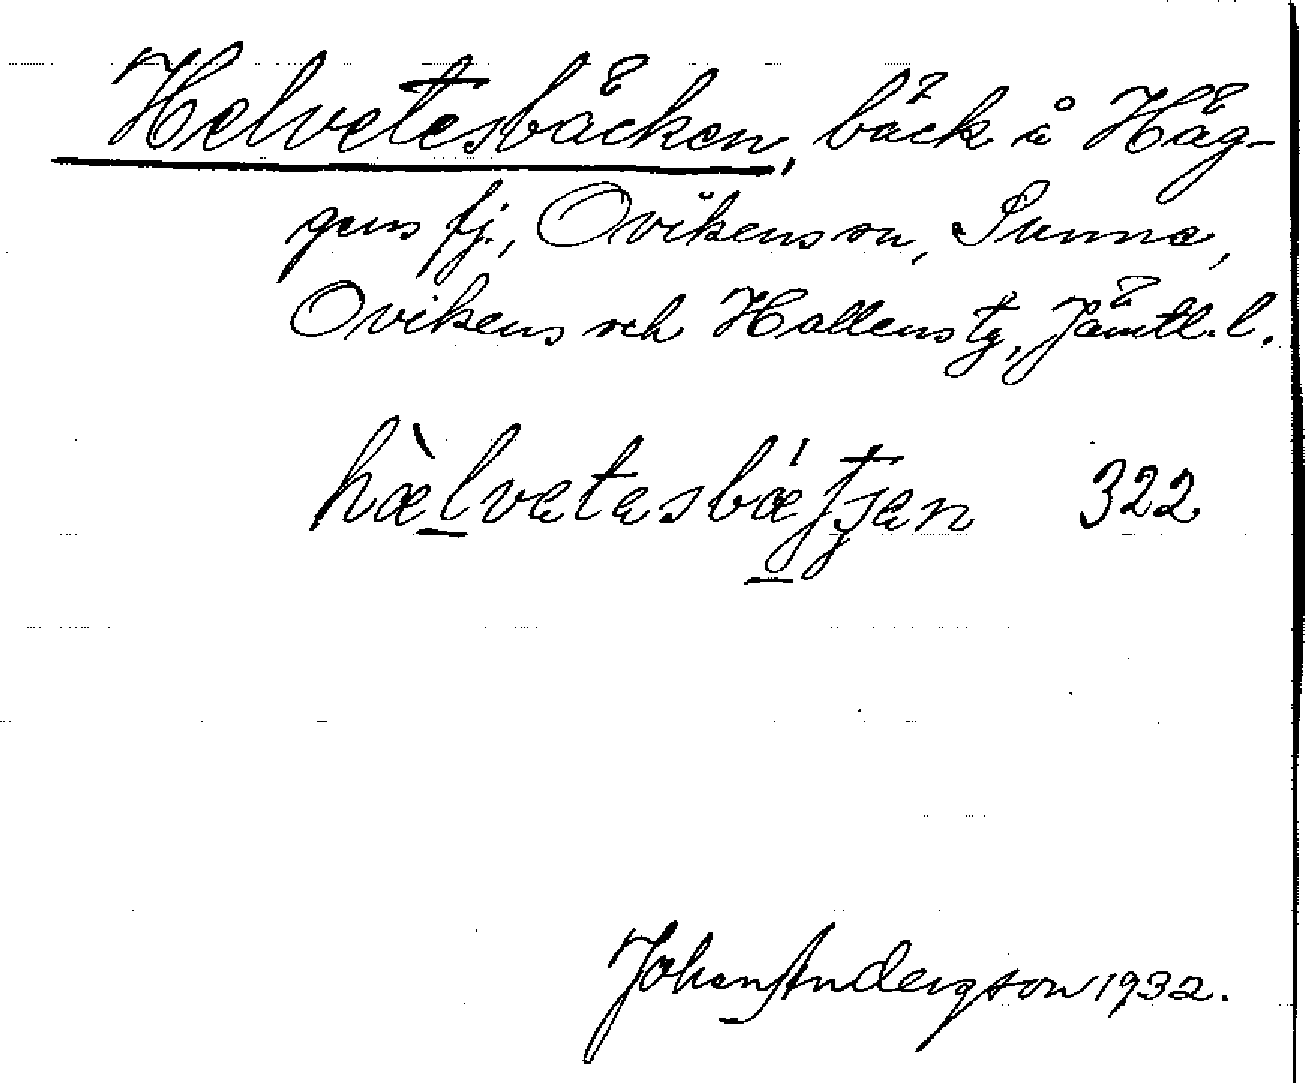 Helvetesbäcken, bäck i Häg-
gens fj., Ovikens sn, Sunne,
Ovikens och Hallens tg, Jämtl. l.
hæ̀lvetesbǽtʃen 322
Johan Andersson 1932.